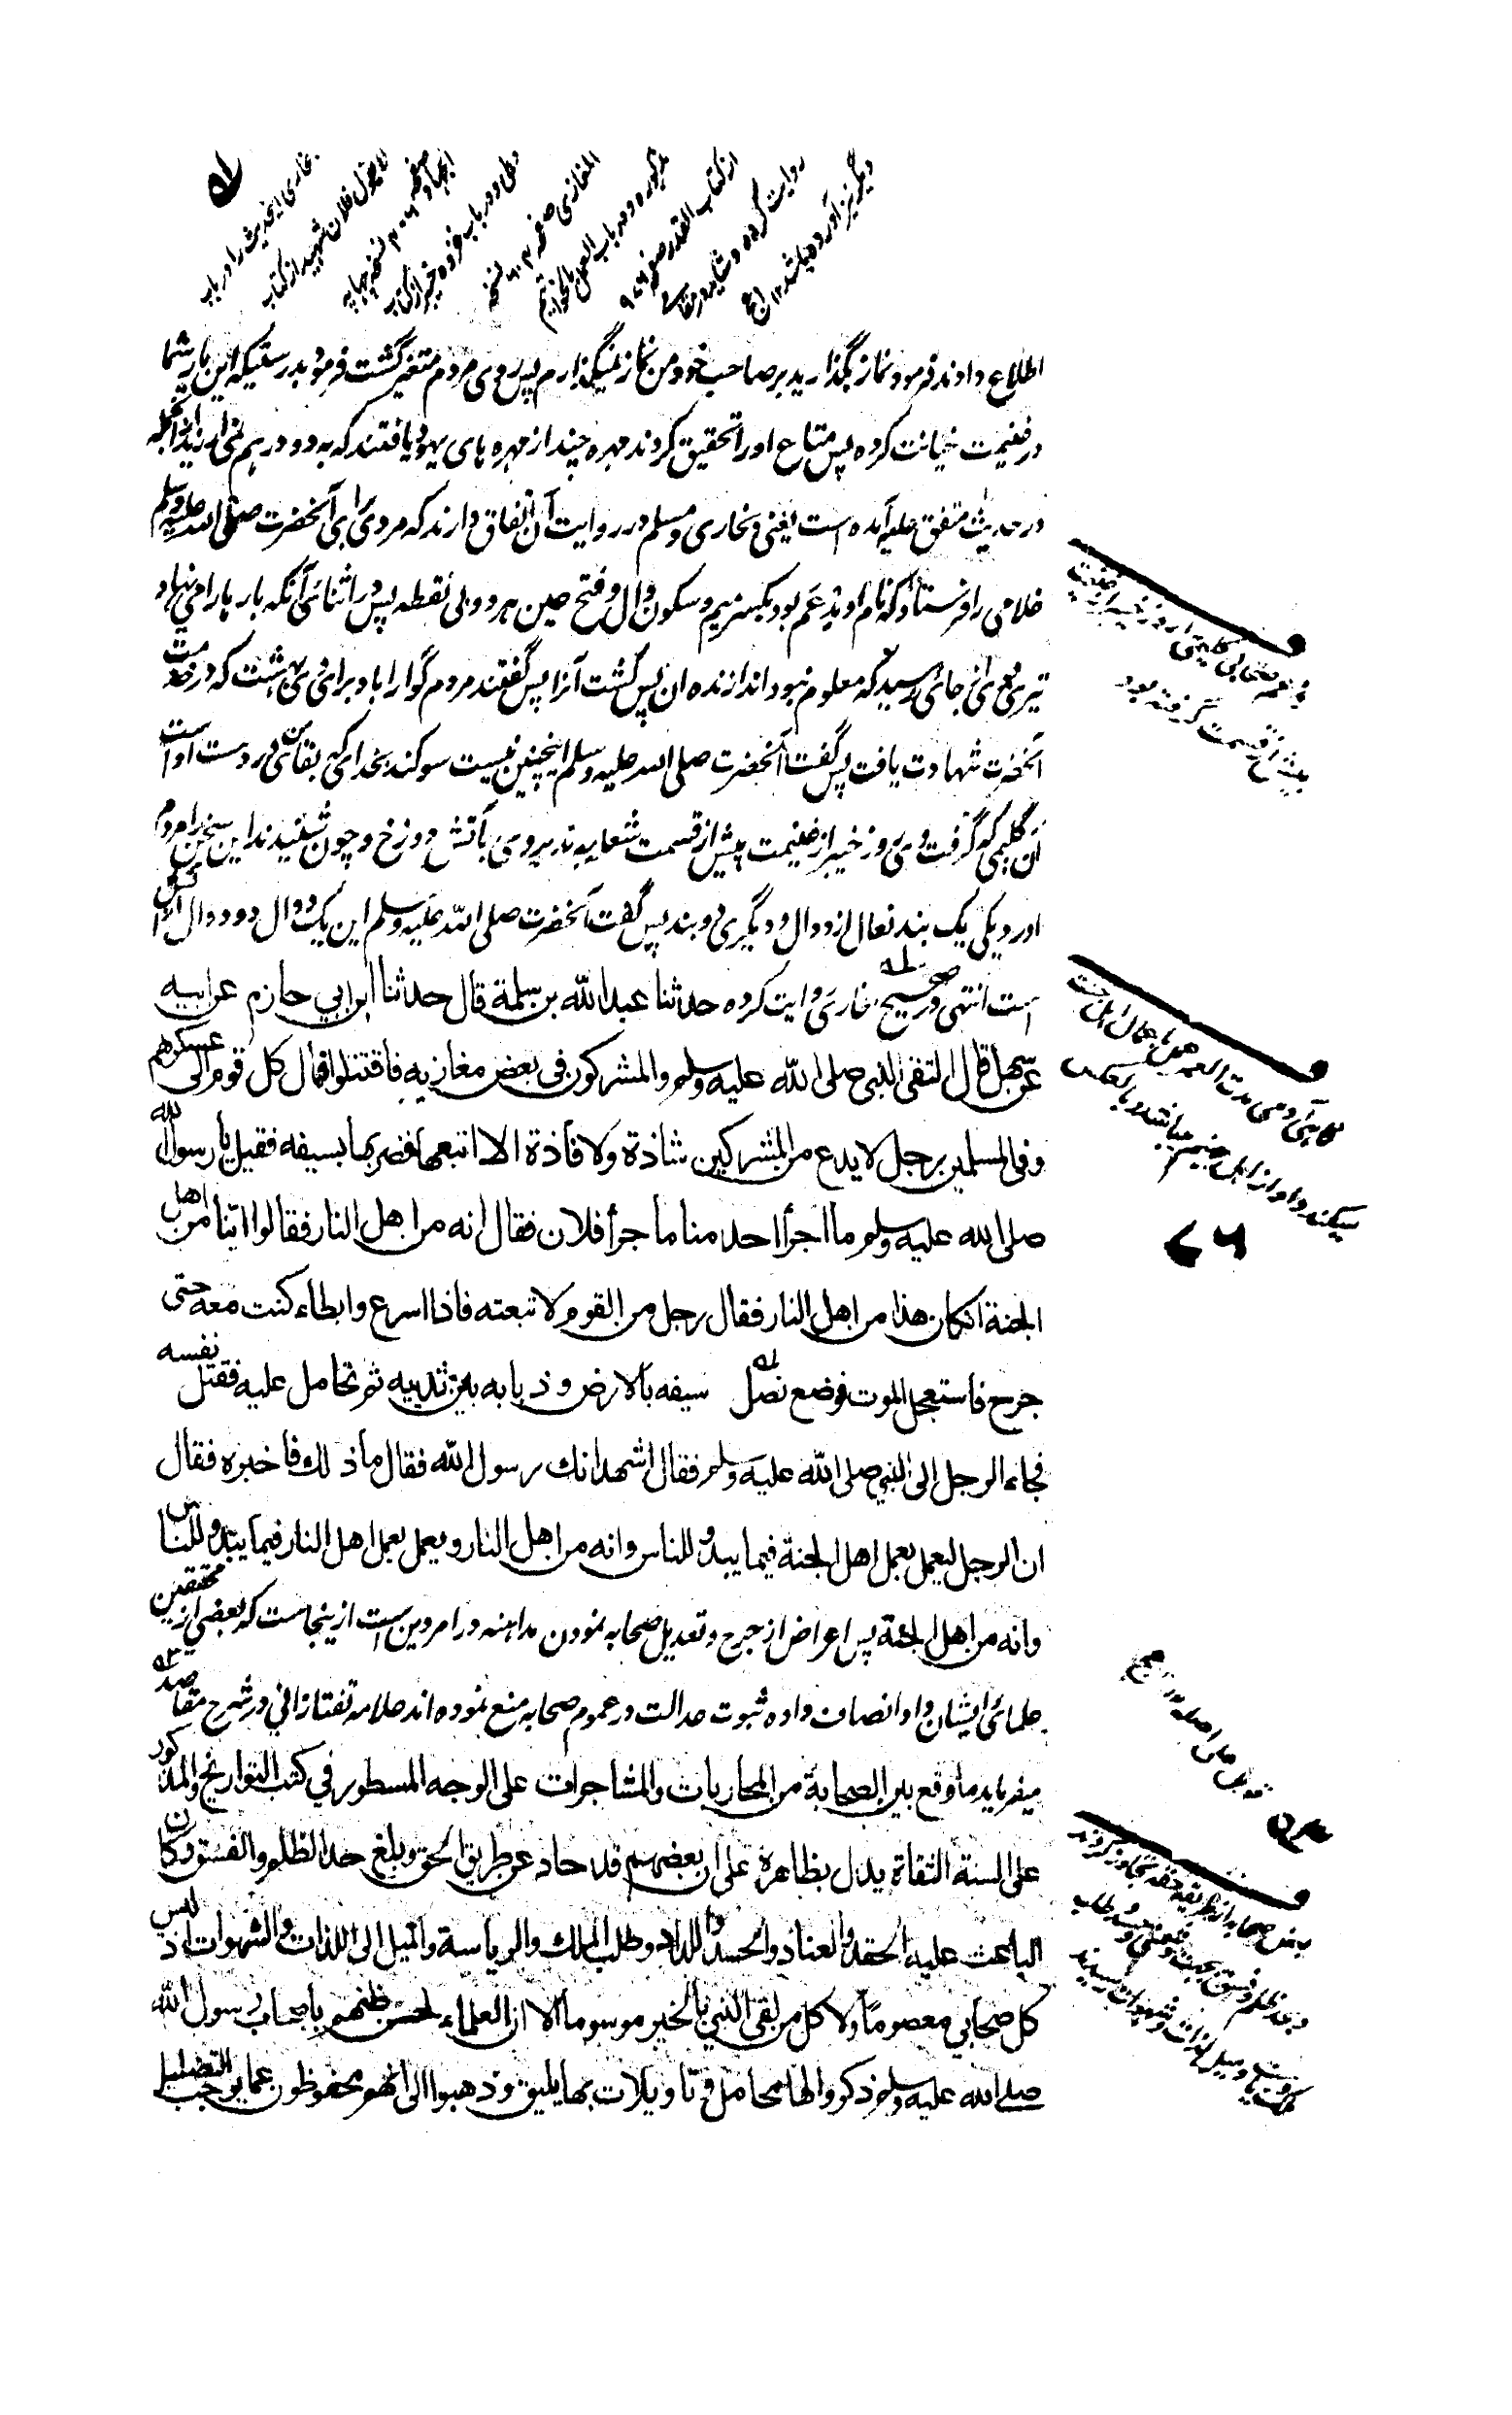 بخاری ایحدیث را در باب
لا یقول فلان شهید از کتاب
الجهاد صفحه ۴۰۶ نسخه چهاپه
دهلی و در باب غزوه خیبر از کتاب
المغازی صفحه ۶۰۴ نسخه
مذکوره و در باب العمل بالخواتیم
از کتاب القدر صفحه ۹۷۸
روایت کرده و شاید در مقامی
دیگر نیز آورده باشد ۱۲
اطلاع دادند فرمود نماز بگذارید بر صاحب خود من نماز نمیگذارم پس روی مردم متغیر گشت فرمود بدرستیکه این یار شما
در غنیمت خیانت کرده پس متاع او را تحقیق کردند مهره چند از مهره های یهود یافتند که به دو درهم نمی ارزید از انجمله
در حدیث متفق علیه آمده است یعنی بخاری و مسلم در روایت آن اتفاق دارند که مردی برای آنحضرت صلی الله علیه وسلم
غلامی را فرستاد که نام او مدعم بود بکسر میم و سکون دال و فتح عین هر دو بی نقطه پس در اثنای آنکه بار پا را می نهاد
تیری بوی از جائی رسید که معلوم نبود اندازنده آن پس کشت آنرا پس گفتند مردم گوارا باد برای وی بهشت که در خدمت
آنحضرت شهادت یافت پس گفت آنحضرت صلی الله علیه وسلم اینچنین نیست سوگند بخدای که بقای من در دست اوست
آن گلیمی که گرفت وی روز خیبر از غنیمت پیش از قسمت شعله میزند بروی بآتش دوزخ و چون شنیدند این سخن را مردم
آورد یکی یک بند نعال از دوال و دیگری دو بند پس گفت آنحضرت صلی الله علیه وسلم این یک دوال و دو دوال از آتش
است انتهی و در صحیح بخاری روایت کرده حدثنا عبد الله بن سلمة قال حدثنا ابن ابي حازم عن ابيه
عن سهل قال التقى النبي صلى الله عليه وسلم والمشركون في بعض مغازيه فاقتتلوا فمال كل قوم الى عسكرهم
وفي المسلمين رجل لا يدع من المشركين شاذة ولا فاذة الا اتبعها فضربها بسيفه فقيل يا رسول الله
صلى الله عليه وسلم ما اجزأ احد منا ما اجزأ فلان فقال انه من اهل النار فقالوا اينا من اهل
الجنة انكان هذا من اهل النار فقال رجل من القوم لاتبعته فاذا اسرع وابطاء كنت معه حتى
جرح فاستعجل الموت فوضع نصل سيفه بالارض وذبابه بين ثدييه ثم تحامل عليه فقتل نفسه
فجاء الرجل الى النبي صلى الله عليه وسلم فقال اشهد انك رسول الله فقال ما ذلك فاخبره فقال
ان الرجل ليعمل بعمل اهل الجنة فيما يبدو للناس وانه من اهل النار ويعمل بعمل اهل النار فيما يبدو للناس
وانه من اهل الجنة پس اعراض از جرح و تعدیل صحابه نمودن مداهنه در امر دین است ازینجاست که بعضی از محققین
علمای ایشان داد انصاف داده ثبوت عدالت در عموم صحابه منع نموده اند علامه تفتازانی در شرح مقاصد
میفرماید ما وقع بين الصحابة من المحاربات والمشاجرات على الوجه المسطور في كتب التواريخ والمذكور
على السنة الثقاة يدل بظاهره على ان بعضهم قد حاد عن طريق الحق وبلغ حد الظلم والفسق وكان
الباعث عليه الحقد والعناد والحسد واللداد وطلب الملك والرياسة والميل الى اللذات والشهوات اذ ليس
كل صحابي معصوما ولا كل من لقي النبي بالخير موسوما الا ان العلماء لحسن ظنهم باصحاب رسول الله
صلى الله عليه وسلم ذكروا لها محامل وتاويلات بها يليق وذهبوا الى انهم محفوظون عما يوجب التضليل
پیش از قسمت گرفته بود
گاهی آدمی مدت العمر عمل باعمال اهل جنت
میکند و او از اهل جهنم میباشد و بالعکس
بعض صحابه از طریقه حقه تجاوز کردند